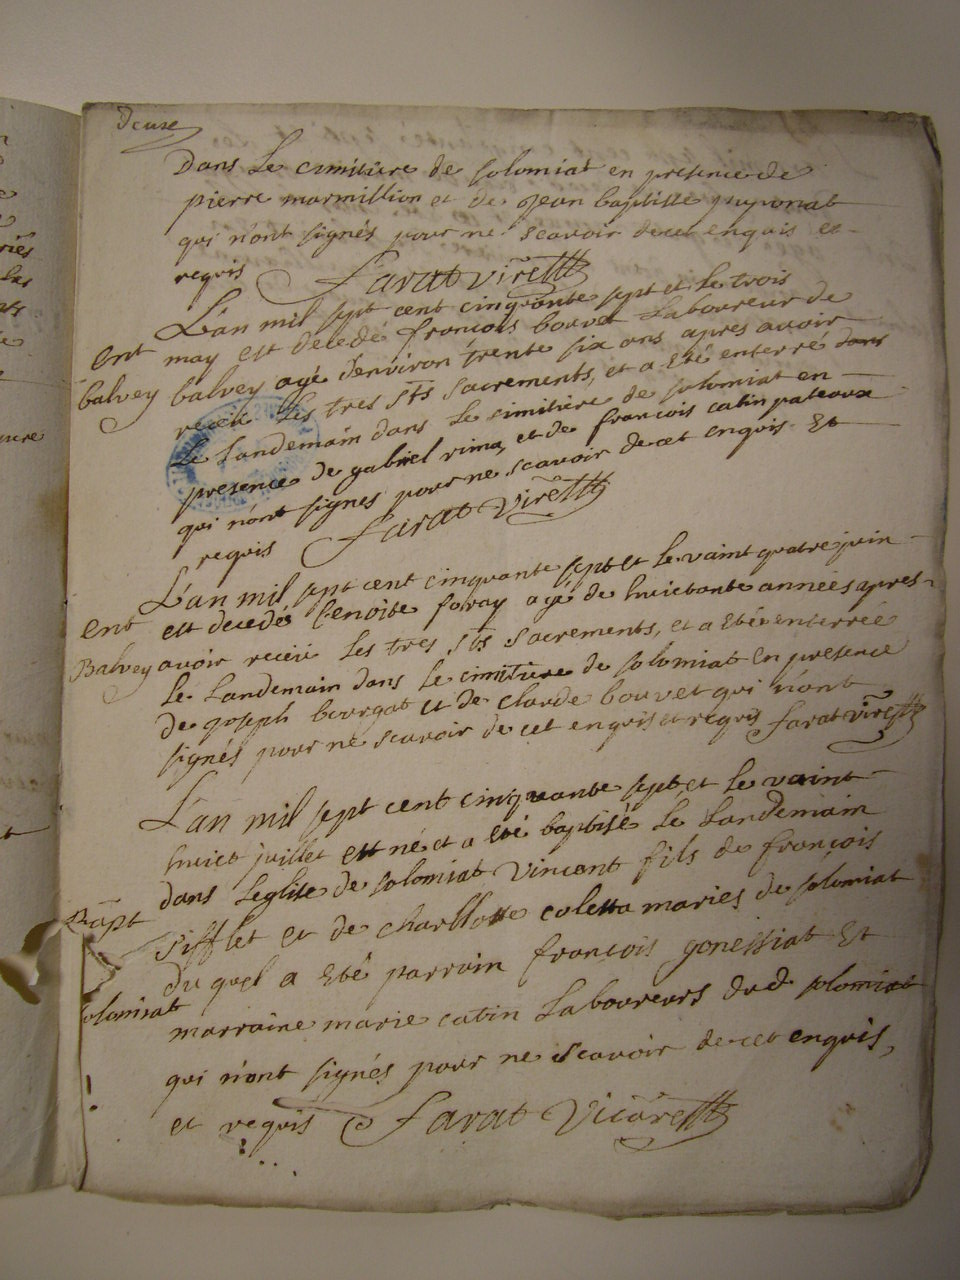 Deuxe
Dans Le cimitiere de solomiat en presence de
pierre marmillion et de Jean baptiste puponat
qui n'ont signés pour ne scavoir de cet enquis et
requis Farat vire
L'an mil sept cent cinquante sept et le trois
Ent may est decedé françois bouvet Laboureur de
balvey balvey agé denviron trente six ans apres avoir
receü les tres sts sacrements, et a eté enterré dans
Le Landemain dans Le cimitiere de solomiat en
presence de gabriel rima, et de francois catin pateaux
qui n'ont signes pour ne scavoir de cet enquis Et
requis Farat vire
L'an mil sept cent cinquante sept et le vaint quatre juin
Ent est decedés benoite foray agé de huictante années apres
Balvey avoir receü Les tres sts sacrements, et a eté enterrée
Le Landemain dans Le cimitiere de solomiat En presence
de joseph bourgat et de claude bouvet qui n'ont
signés pour ne scavoir de cet enquis et requis Farat vire
L'an mil sept cent cinquante sept et le vaint
huict juillet est né et a eté baptisé Le Landemain
dans Leglise de solomiat Vincent fils de françois
Bapt sifflet et de charllotte coletta maries de solomiat
du quel a eté parrain françois gonessiat Et
solomiat marraine marie catin Laboureurs dud solomiat
qui n'ont signés pour ne scavoir de cet enquis,
et requis Farat Vicáre